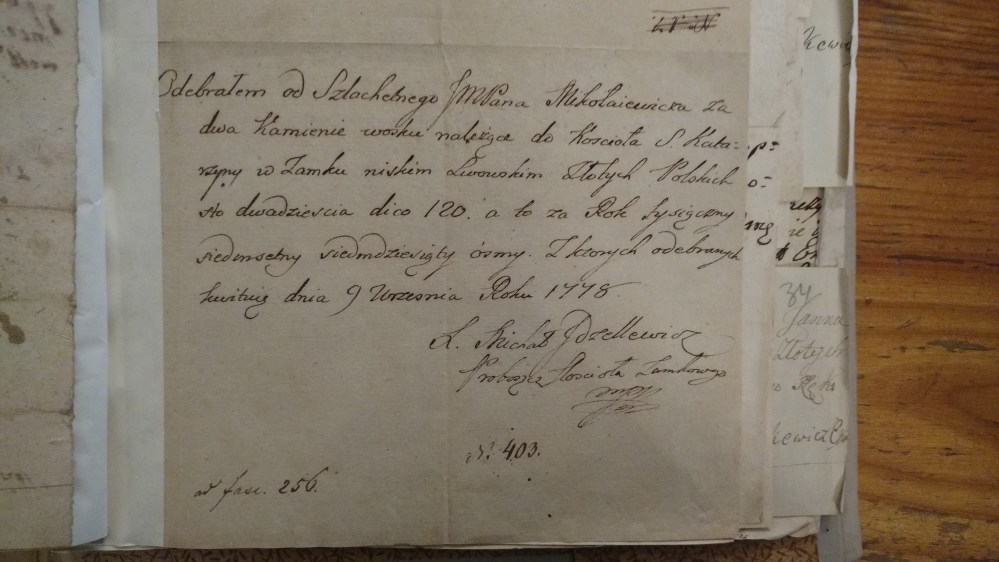 Odebrałem od Szlachetnego JMPana Mikołaiewicza za
dwa Kamienie wosku należące do Kościoła S. Kata-
rzyny w Zamku niskim Lwowskim Złotych Polskich
sto dwadzieścia dico 120. a to za Rok tysiączny
siedmsetny siedmdziesiąty ósmy. Z których odebranych
kwituię dnia 9 Wrzesnia Roku 1778.
X. Michał
Proboszcz Kościoła Zamkowego
mpp
N. 403.
ad fasc. 256.
kewic
zy
Janna
Złotych
w Ręku
kewicz